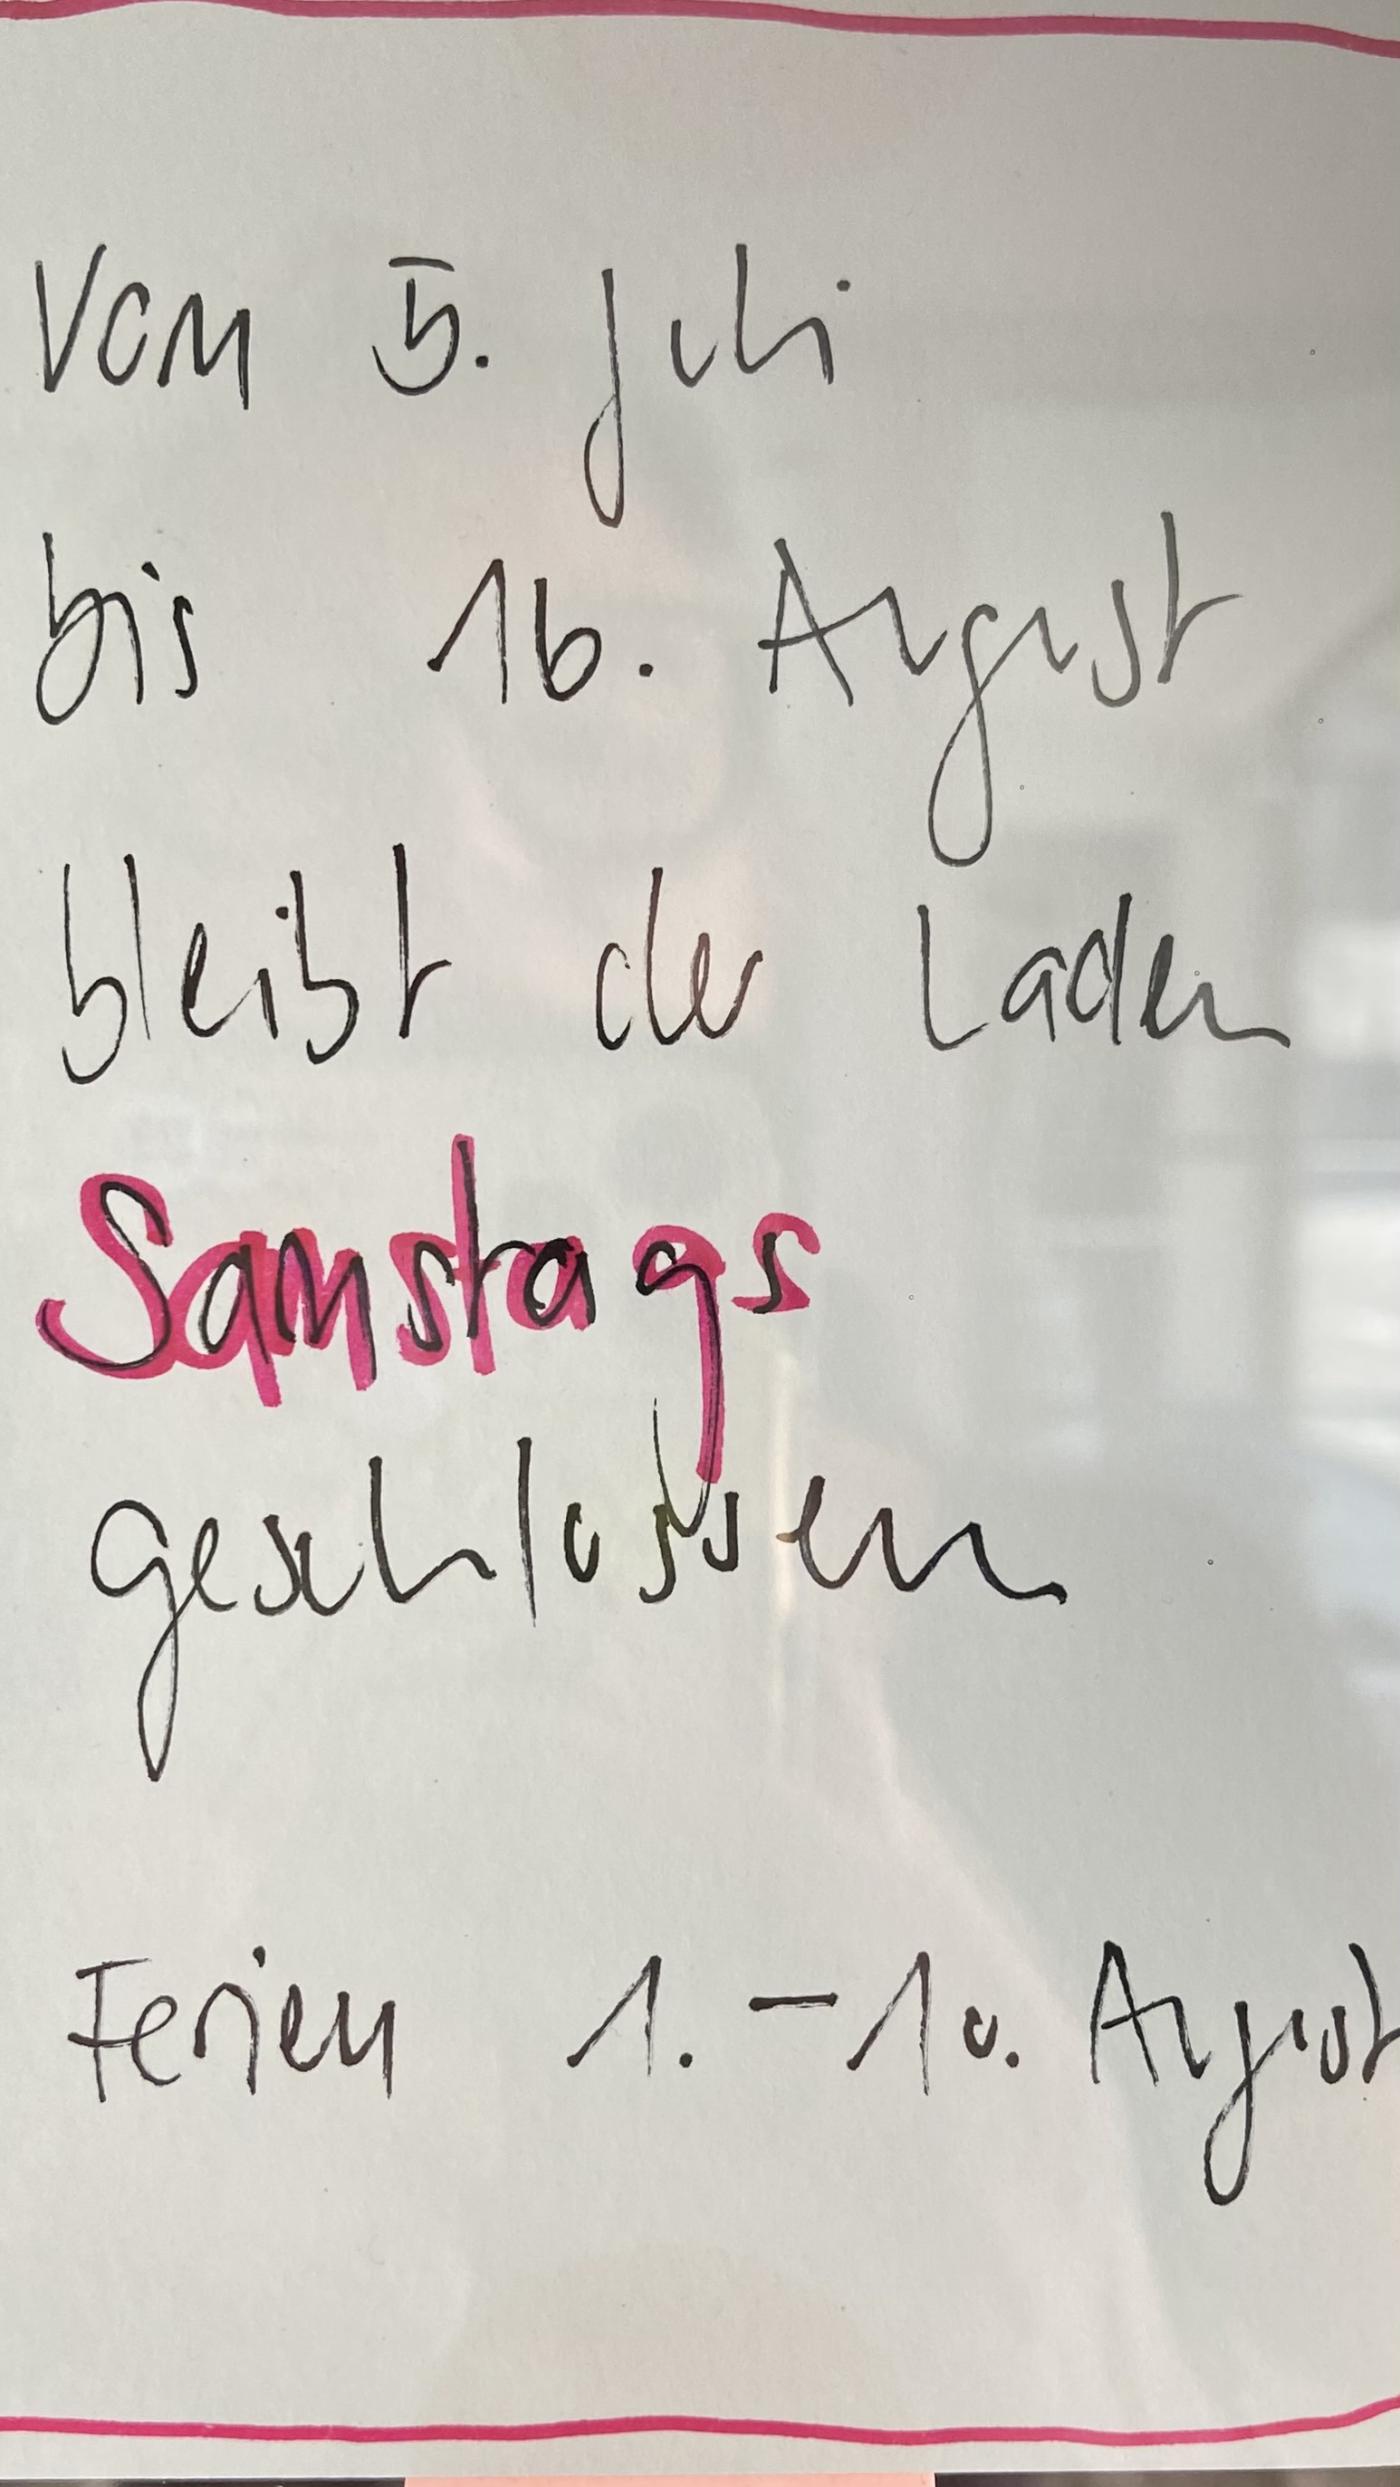 Vom 5. Juli
bis 16. August
bleibt der Laden
Samstags
geschlossen
Ferien 1. – 10. August